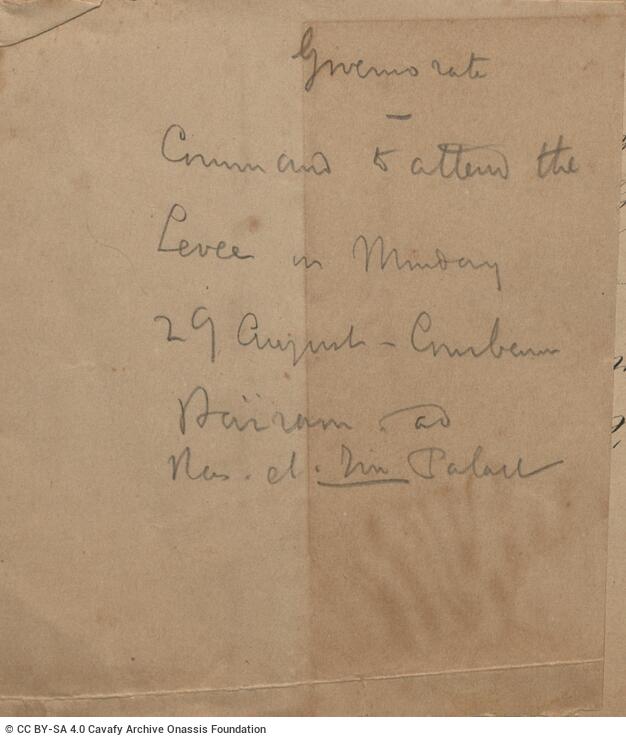 Governorate
—
Command to attend the
Levee on Monday
29 August - Courban
Baïram. at
Ras. el. Tin Palace
© CC BY-SA 4.0 Cavafy Archive Onassis Foundation